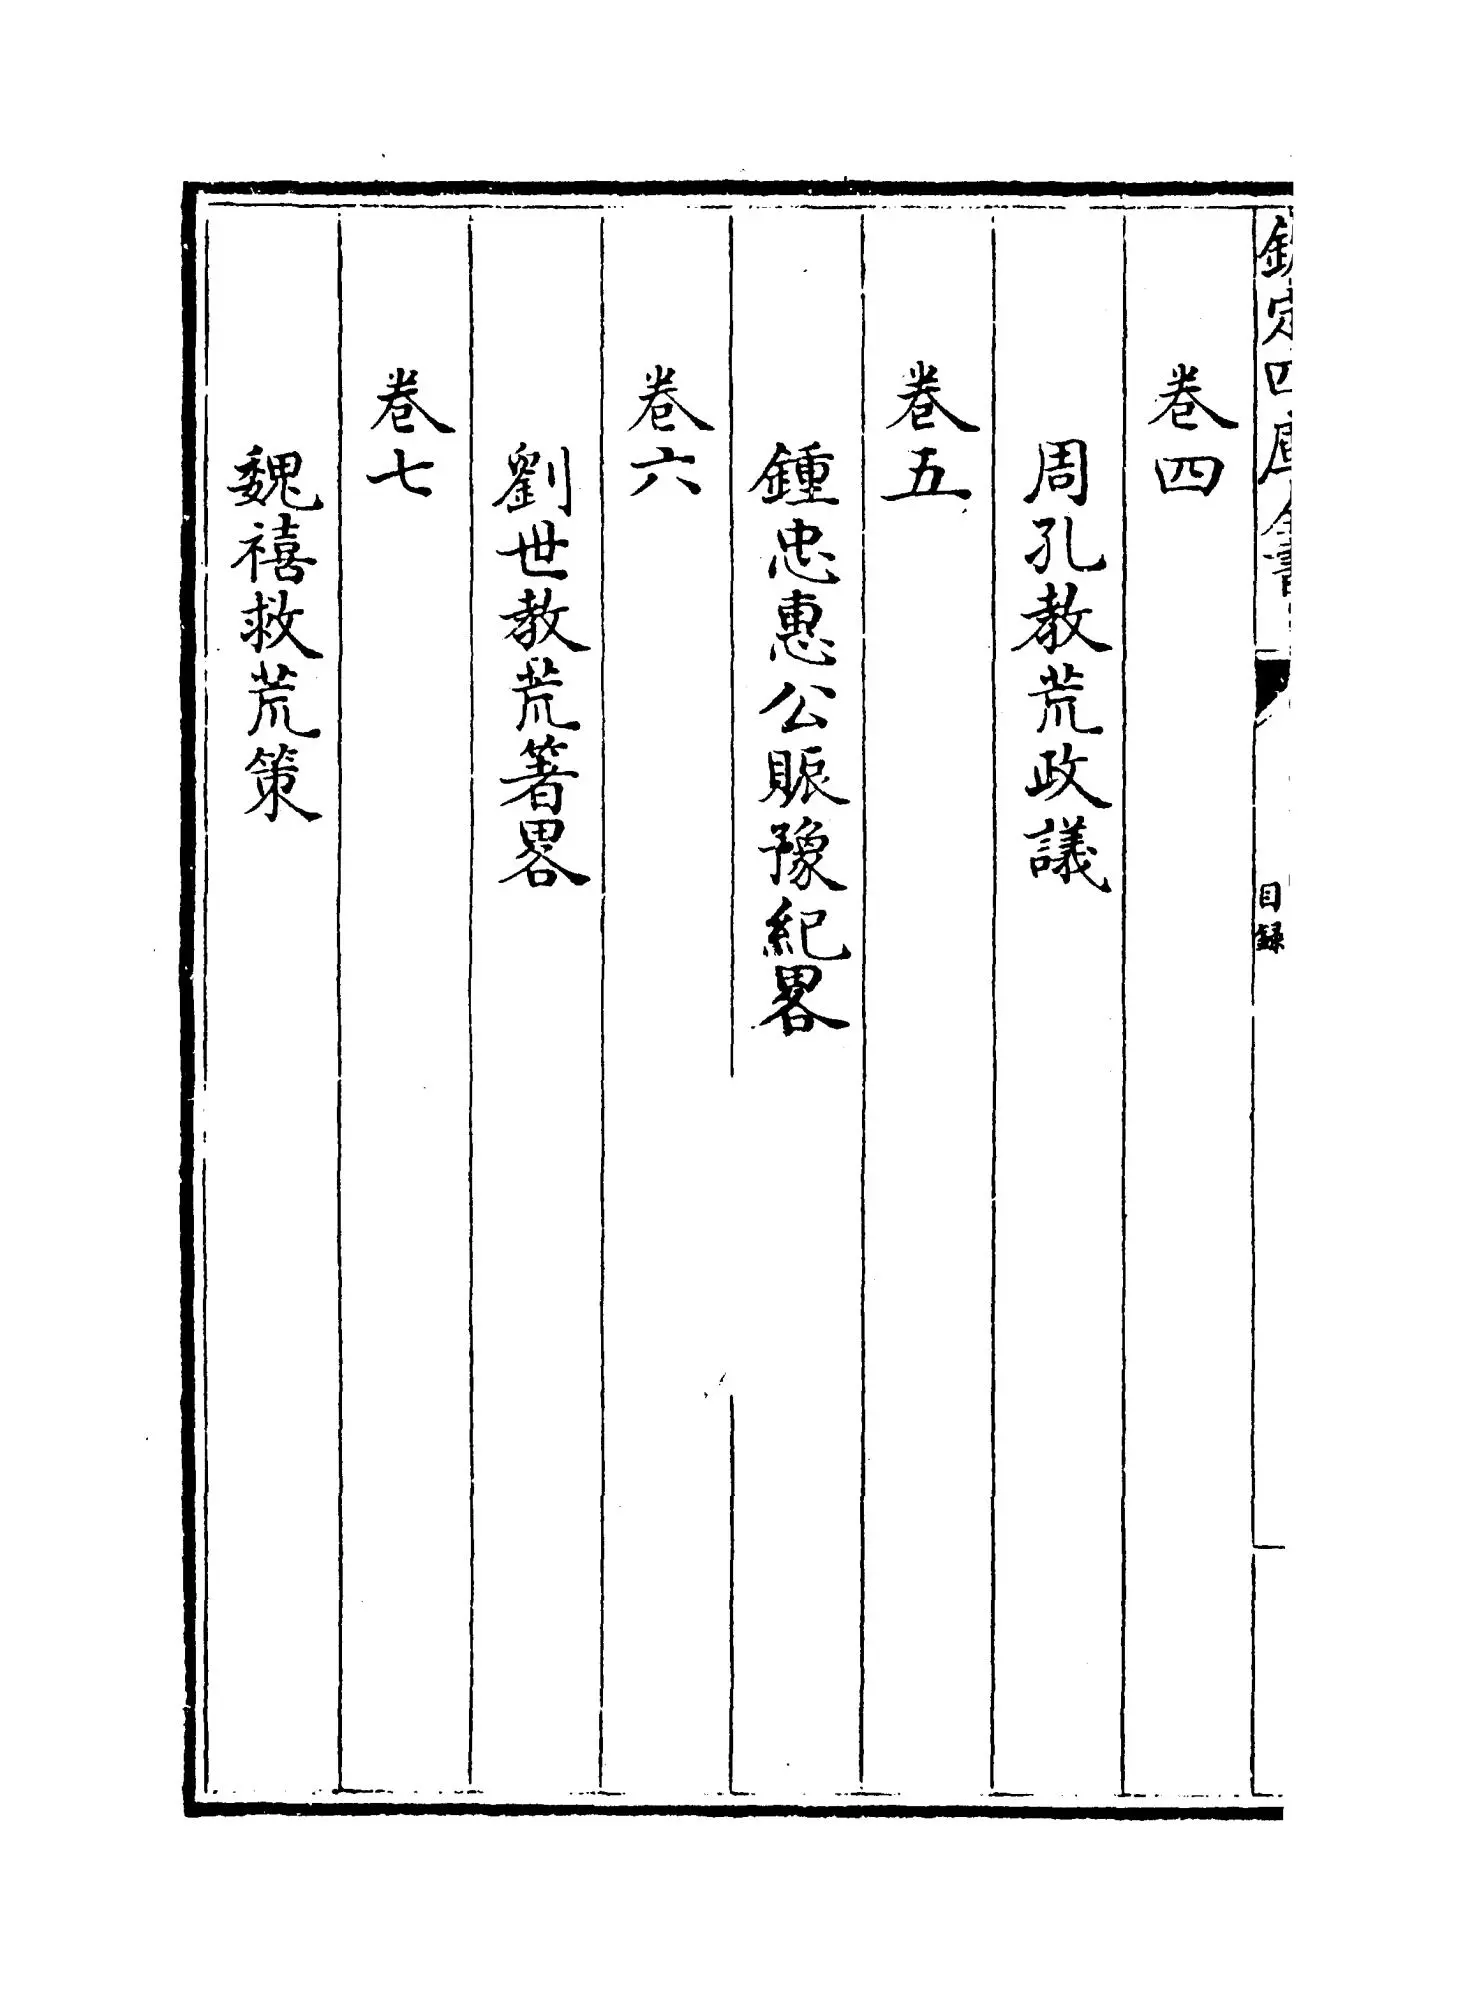 欽定四庫全書
目録
卷四
周孔教荒政議
卷五
鍾忠惠公賑豫紀畧
卷六
劉世教荒箸畧
卷七
魏禧救荒策